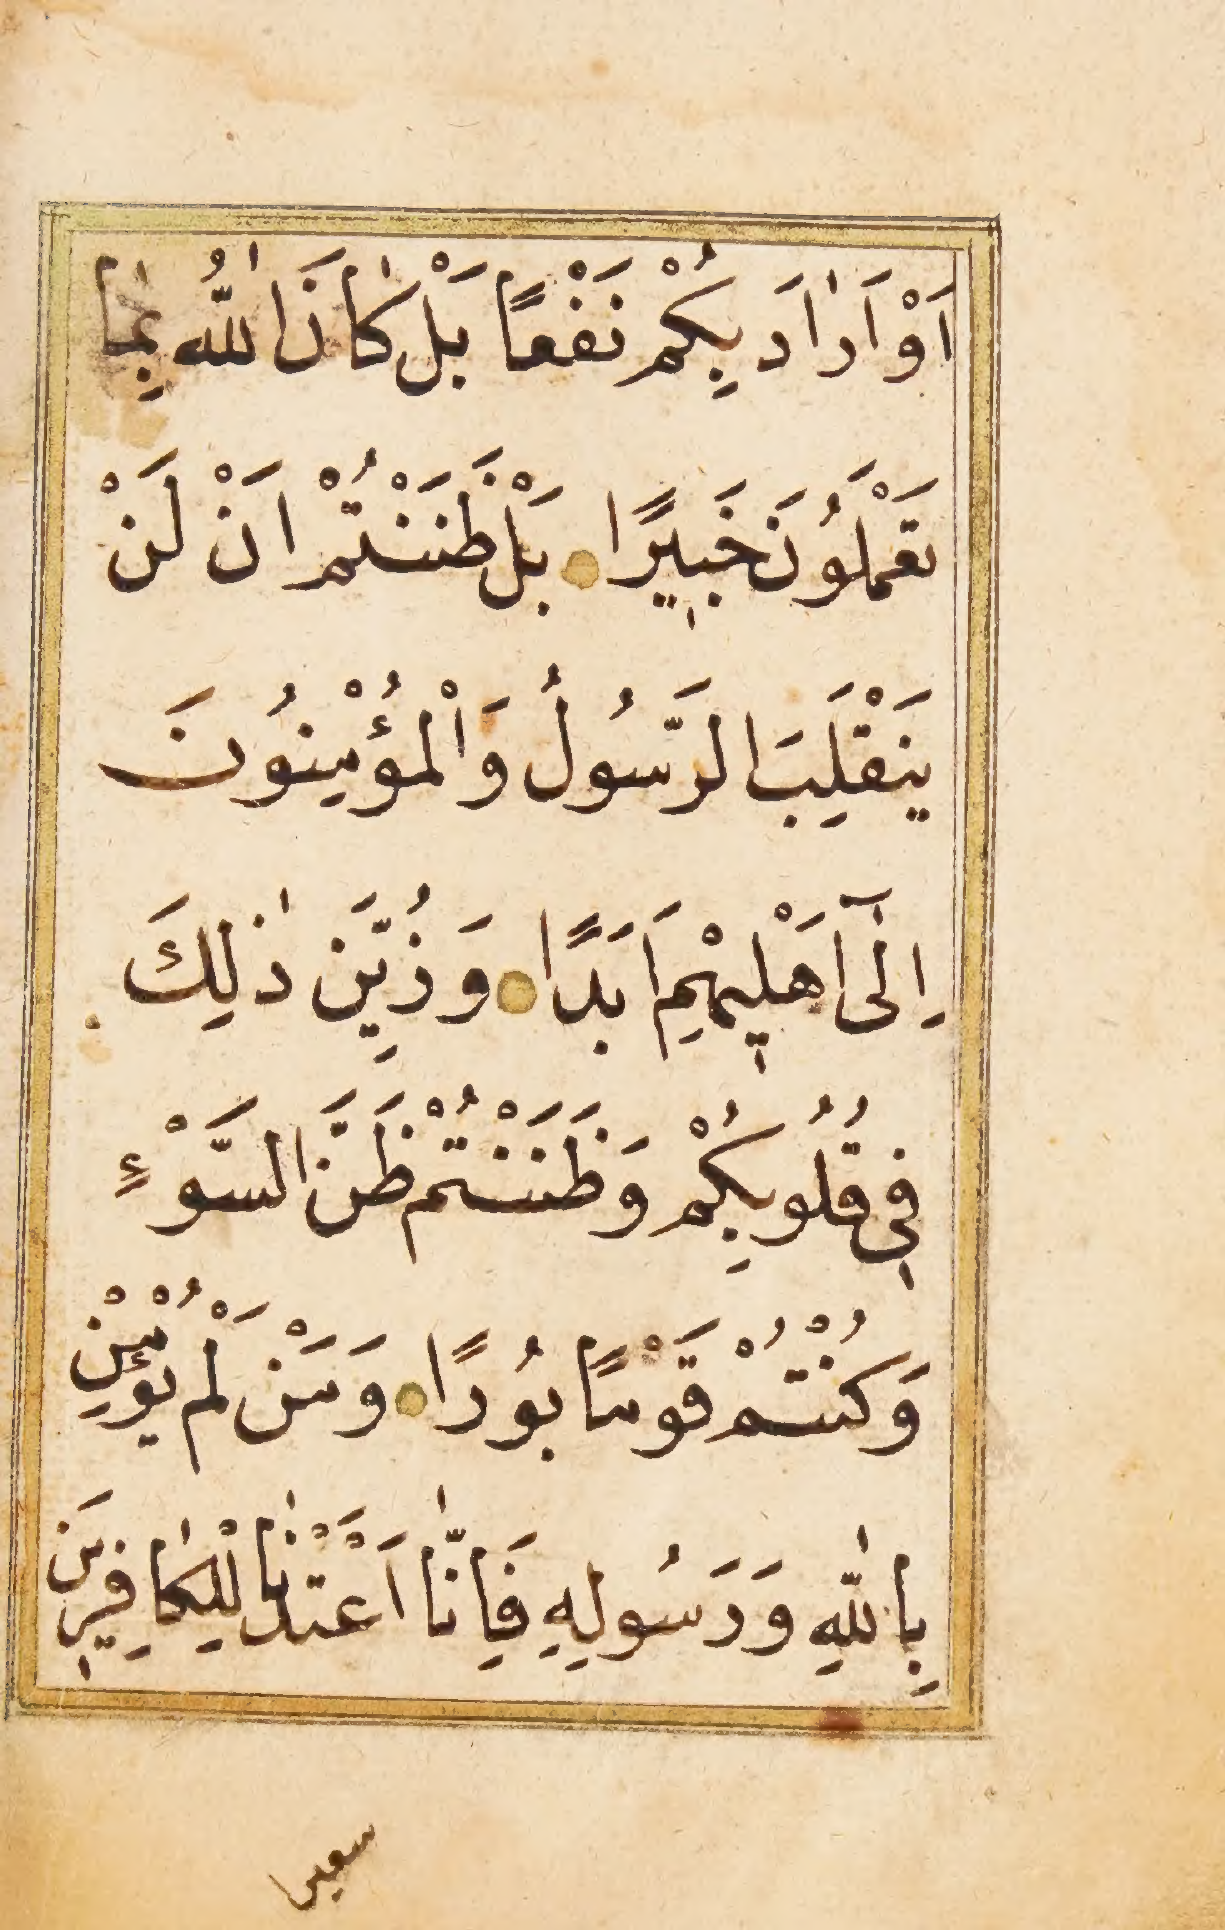 اَوْ اَرٰادَ بِكُمْ نَفْعًا بَلْ كٰانَ اللّٰهُ بِمٰا
تَعْمَلُونَ خَبٖيرًا بَلْ ظَنَنْتُمْ اَنْ لَنْ
يَنْقَلِبَ الرَّسُولُ وَالْمُؤْمِنُونَ
اِلٰٓى اَهْلٖيهِمْ اَبَدًا وَزُيِّنَ ذٰلِكَ
فٖى قُلُوبِكُمْ وَظَنَنْتُمْ ظَنَّ السَّوْءِ
وَكُنْتُمْ قَوْمًا بُورًا وَمَنْ لَمْ يُؤْمِنْ
بِاللّٰهِ وَرَسُولِهِ فَاِنّٰا اَعْتَدْنٰا لِلْكٰافِرٖينَ
سعيرا